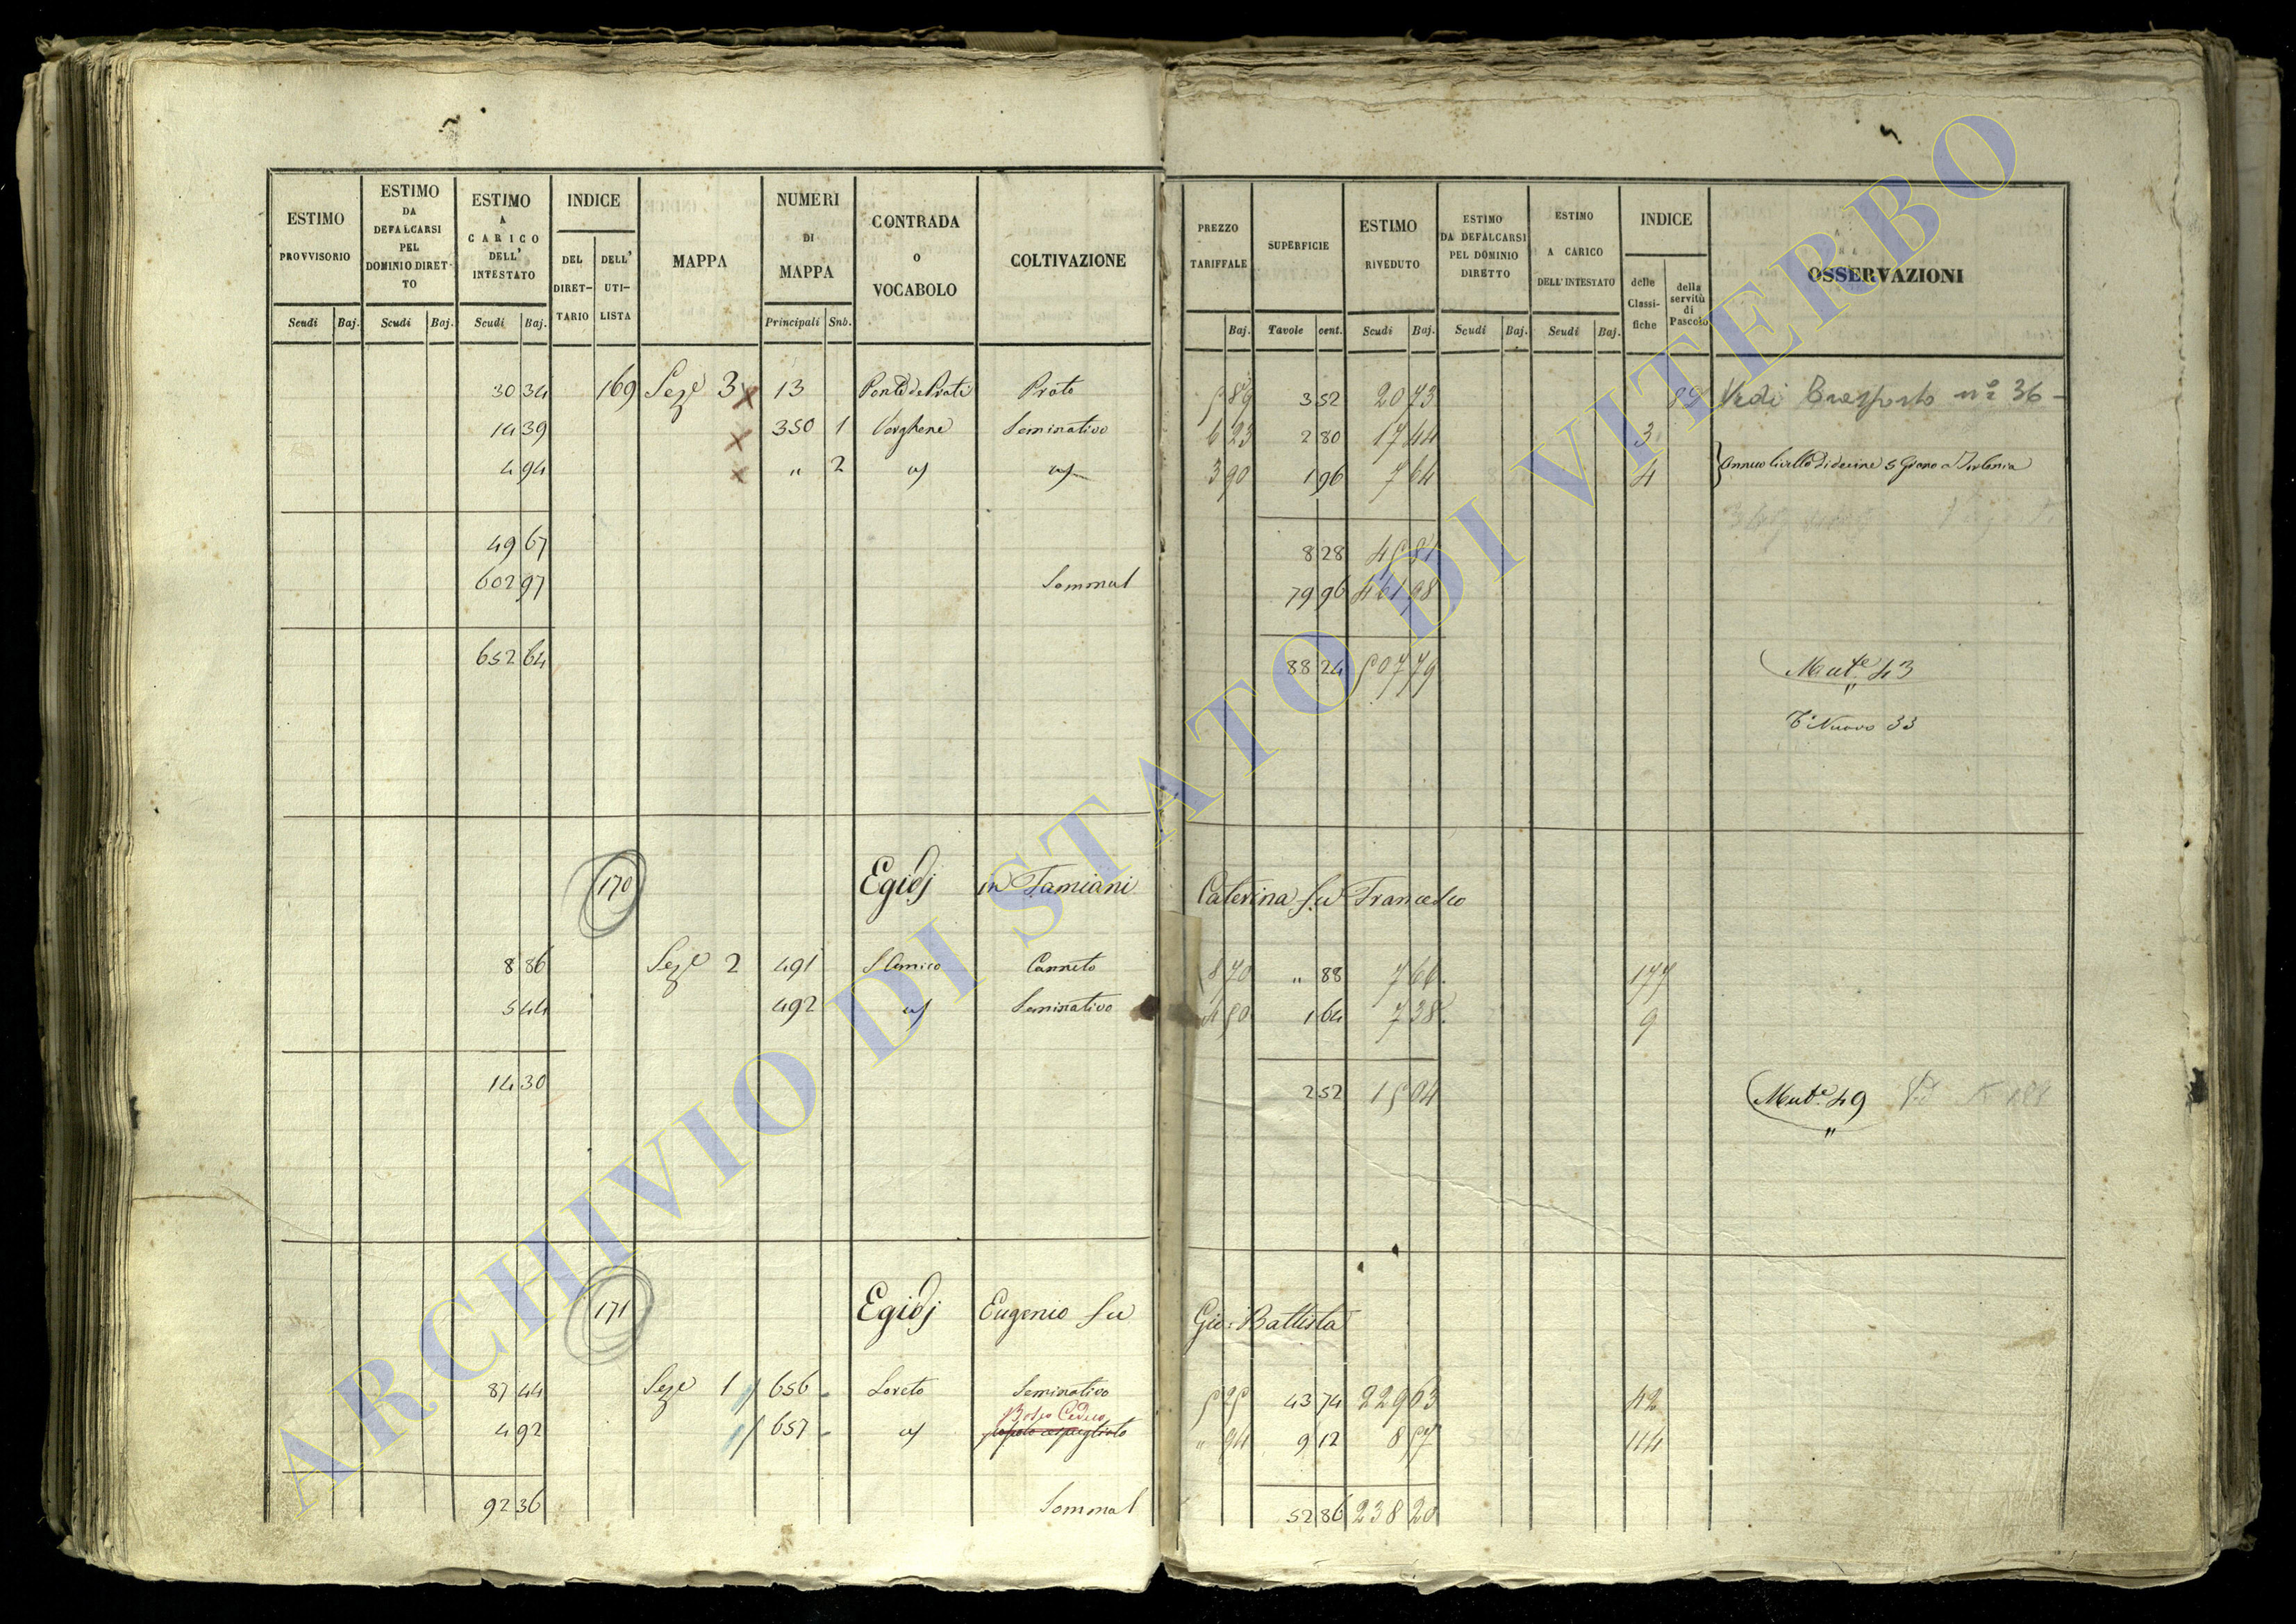 ESTIMO PROVVISORIO | ESTIMO DA DEFALCARSI PEL DOMINIO DIRETTO | ESTIMO A CARICO DELL' INTESTATO | INDICE | MAPPA | NUMERI DI MAPPA | CONTRADA O VOCABOLO | COLTIVAZIONE | PREZZO TARIFFALE | SUPERFICIE | ESTIMO RIVEDUTO | ESTIMO DA DEFALCARSI PEL DOMINIO DIRETTO | ESTIMO A CARICO DELL' INTESTATO | INDICE | OSSERVAZIONI
DEL DIRETTARIO | DELL' UTILISTA | delle Classifiche | della servitù di Pascolo
Scudi | Baj. | Scudi | Baj. | Scudi | Baj. | Principali | Sub. | Baj. | Tavole | cent. | Scudi | Baj. | Scudi | Baj. | Scudi | Baj.
30 34 | 169 | Seze 3 | 13 | Prato | 5 89 | 3 52 | 20 73 | 89 | Vedi Trasporto nº 36
14 39 | 350 | 1 | Seminativo | 6 23 | 2 80 | 17 44 | 3
4 94 | " | 2 | 3 90 | 1 96 | 7 64 | 4
49 67 | 8 28 | 45 81
602 97 | 79 96 | 461 98
652 64 | 88 24 | 507 79 | Mute 43
Nuovo 33
170 | Egidj in Tamiani Caterina fu Francesco
8 86 | Seze 2 | 491 | S Amico | Canneto | 8 70 | " 88 | 7 66 | 177
5 44 | 492 | Seminativo | 4 50 | 1 64 | 7 38 | 9
14 30 | 2 52 | 15 04 | Mute 49
171 | Egidj Eugenio fu Gio: Battista
87 44 | Seze 1 | 656 | Loreto | Seminativo | 5 25 | 43 74 | 229 63 | 42
Bosco Ceduo
4 92 | 657 | " 94 | 9 12 | 8 57 | 114
92 36 | 52 86 | 238 20
ARCHIVIO DI STATO DI VITERBO